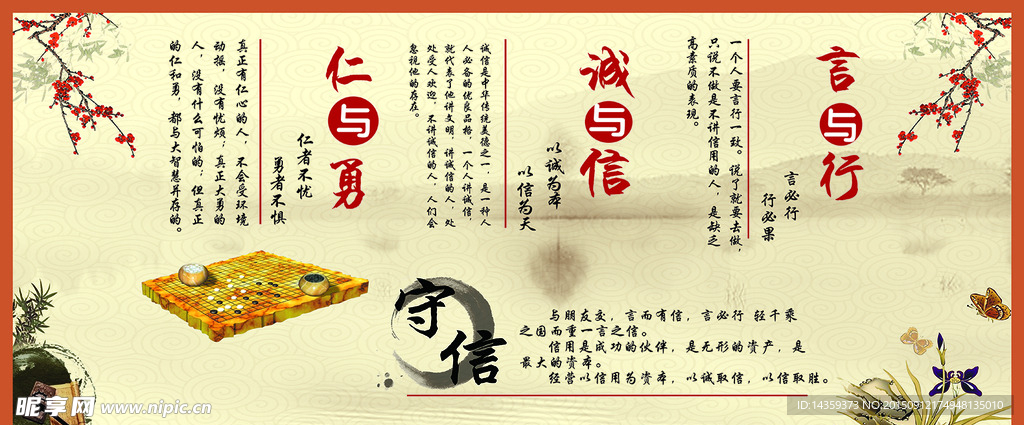 言与行
言必行
行必果
一个人要言行一致。说了就要去做，
只说不做是不讲信用的人，是缺乏
高素质的表现。
诚与信
以诚为本
以信为天
诚信是中华传统美德之一，是一种人
人必备的优良品格，一个人讲诚信，
就代表了他讲文明，讲诚信的人，处
处受人欢迎，不讲诚信的人，人们会
忽视他的存在。
仁与勇
仁者不忧
勇者不惧
真正有仁心的人，不会受环境
动摇，没有忧烦；真正大勇的
人，没有什么可怕的；但真正
的仁和勇，都与大智慧并存的。
守信
与朋友交，言而有信，言必行 轻千乘
之国而重一言之信。
信用是成功的伙伴，是无形的资产，是
最大的资本。
经营以信用为资本，以诚取信，以信取胜。
昵享网 www.nipic.cn
ID:14359373 NO:20150912174948135010